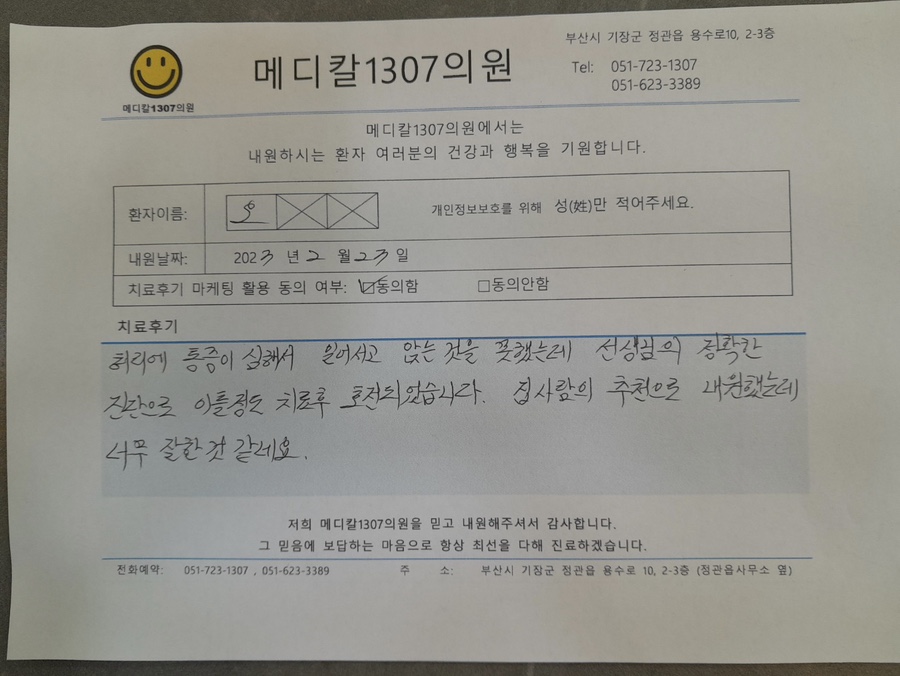 부산시 기장군 정관읍 용수로10, 2-3층
메디칼1307의원
Tel: 051-723-1307
051-623-3389
메디칼1307의원
메디칼1307의원에서는
내원하시는 환자 여러분의 건강과 행복을 기원합니다.
환자이름: 오 개인정보보호를 위해 성(姓)만 적어주세요.
내원날짜: 2023 년 2 월 23 일
치료후기 마케팅 활용 동의 여부: ☑동의함 □동의안함
치료후기
허리에 통증이 심해서 일어서고 앉는 것을 못했는데 선생님의 정확한
진단으로 이틀정도 치료후 호전되었습니다. 집사람의 추천으로 내원했는데
너무 잘한것 같네요.
저희 메디칼1307의원을 믿고 내원해주셔서 감사합니다.
그 믿음에 보답하는 마음으로 항상 최선을 다해 진료하겠습니다.
전화예약: 051-723-1307 , 051-623-3389 주 소: 부산시 기장군 정관읍 용수로 10, 2-3층 (정관읍사무소 옆)